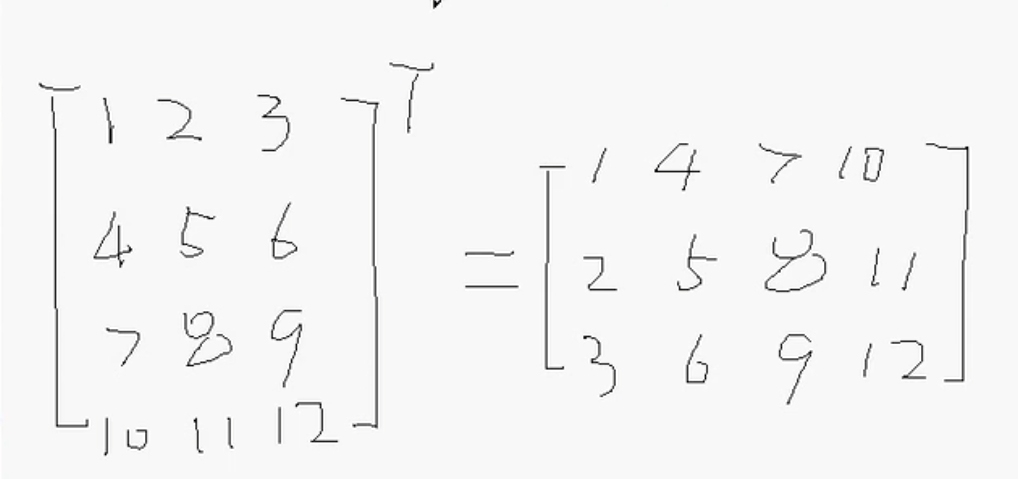 [1 2 3
4 5 6
7 8 9
10 11 12]^T = [1 4 7 10
2 5 8 11
3 6 9 12]